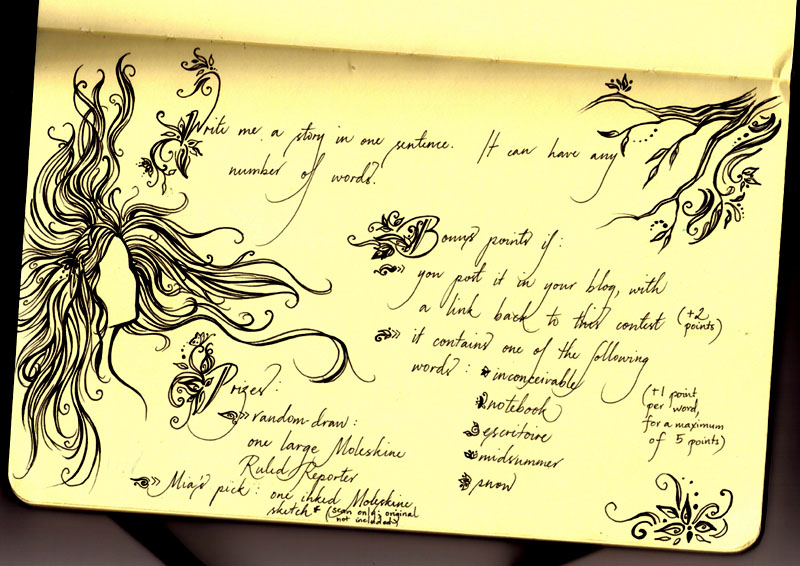 Write me a story in one sentence. It can have any
number of words.
Bonus points if:
you post it in your blog, with
a link back to this contest (+2
points)
it contains one of the following
words: inconceivable
notebook
escritoire
midsummer
snow
(+1 point
per word,
for a maximum
of 5 points)
Prizes:
random draw:
one large Moleskine
Ruled Reporter
Mia's pick: one inked Moleskine
sketch* (scan only; original
not included)